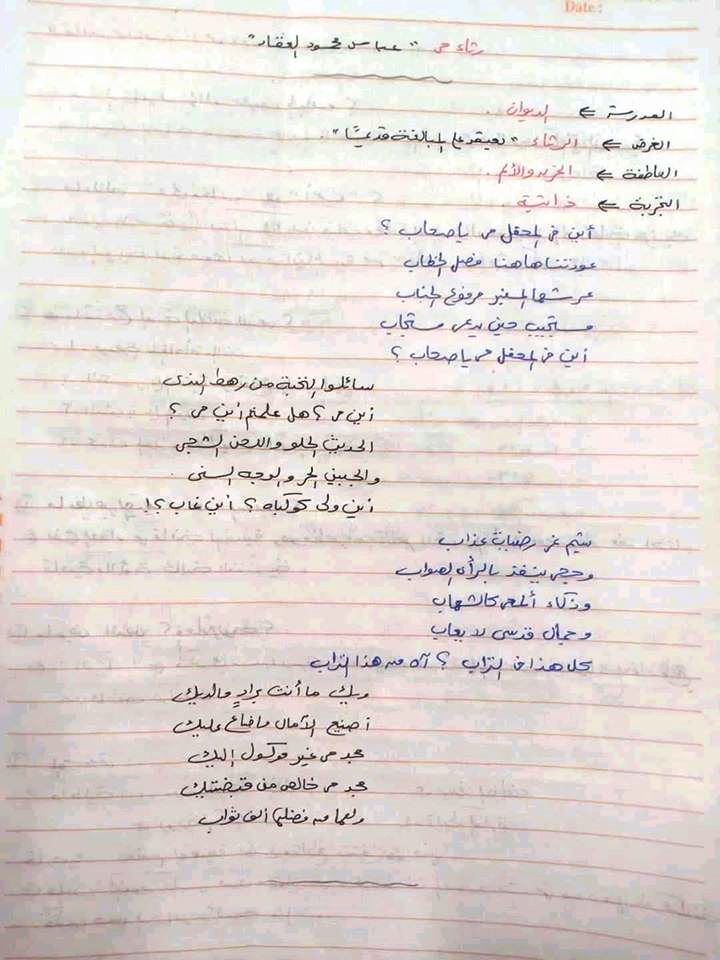 Date:
رثاء مى "عباس محمود العقاد"
المدرسة ⇐ الديوان.
الغرض ⇐ الرثاء "يعتمد على المبالغة قديمًا".
العاطفة ⇐ الحزن والألم.
التجربة ⇐ ذاتية
أين فى المحفل مى يا صحاب ؟
عودتنا هاهنا فصل الخطاب
عرشها المنبر مرفوع الجناب
مستجيب حين يدعى مستجاب
أين فى المحفل مى يا صحاب ؟
سائلوا النخبة من رهط الندى
أين مى ؟ هل علمتم أين مى ؟
الحديث الحلو واللحن الشجى
والجبين الحر والوجه السنى
أين ولى كوكباه ؟ أين غاب ؟!
شيم غر رضيات عذاب
وحجى ينفذ بالرأى الصواب
وذكاء ألمعى كالشهاب
وجمال قدسى لا يعاب
كل هذا فى التراب ؟ آه من هذا التراب
ويك ما أنت برادٍ ما لديك
أضيع الآمال ما ضاع عليك
مجد مى غير موكول إليك
مجد مى خالص من قبضتيك
ولها من فضلها ألف ثواب